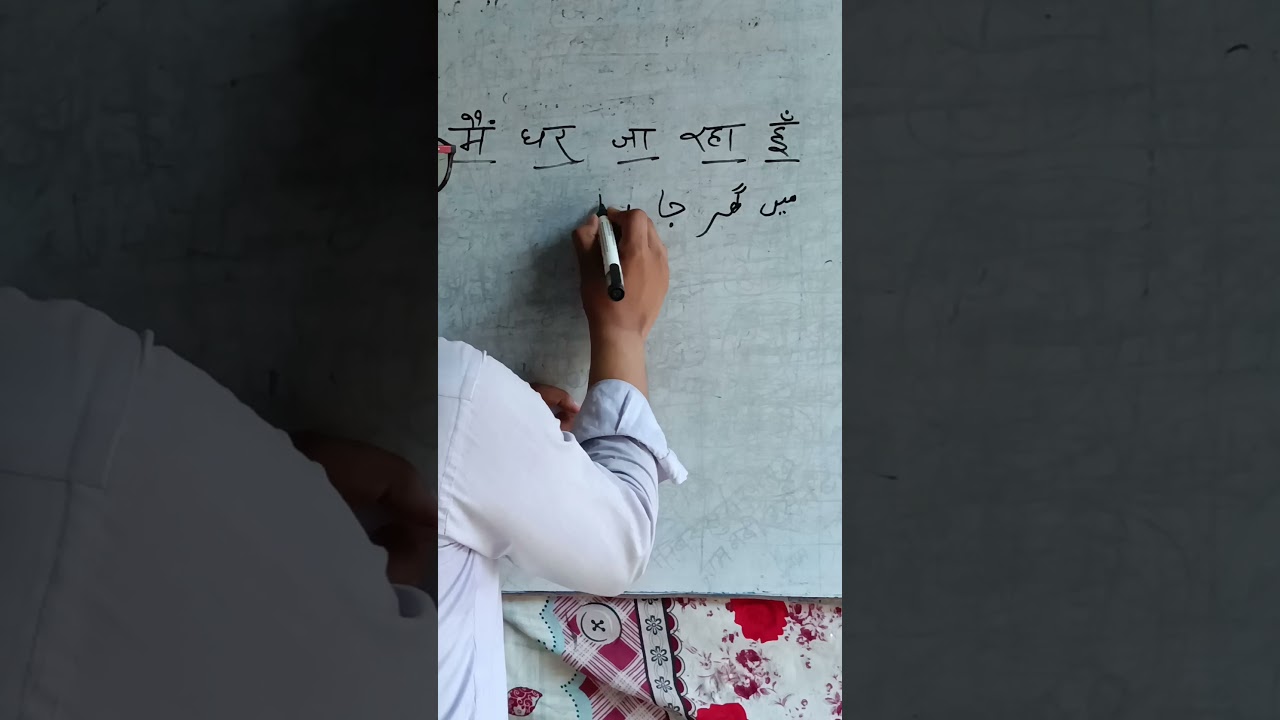 मैं घर जा रहा हूँ
میں گھر جا